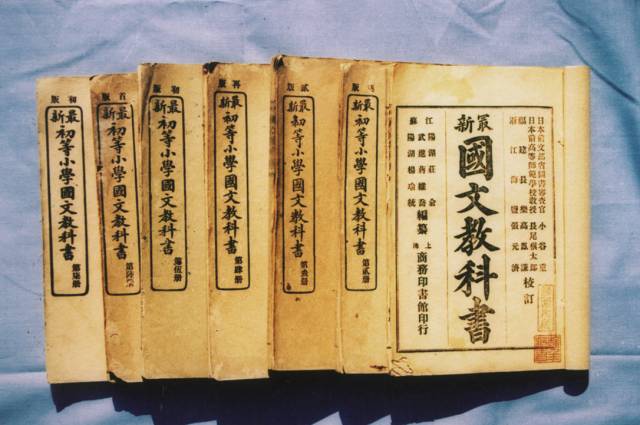 日本前文部省圖書審查官 小谷重
日本前高等師範學校教授 長尾槇太郎
福建長樂高鳳謙
浙江海鹽張元濟
校訂
最新
國文教科書
江 陽湖莊俞
武進蔣維喬
蘇 陽湖楊瑜統
編纂
上海
商務印書館印行
版
最新
初等小學國文教科書
第貳冊
貳版
最新
初等小學國文教科書
第叁冊
再版
最新
初等小學國文教科書
第肆冊
初版
最新
初等小學國文教科書
第伍冊
首版
最新
初等小學國文教科書
第陸冊
初版
最新
初等小學國文教科書
第柒冊